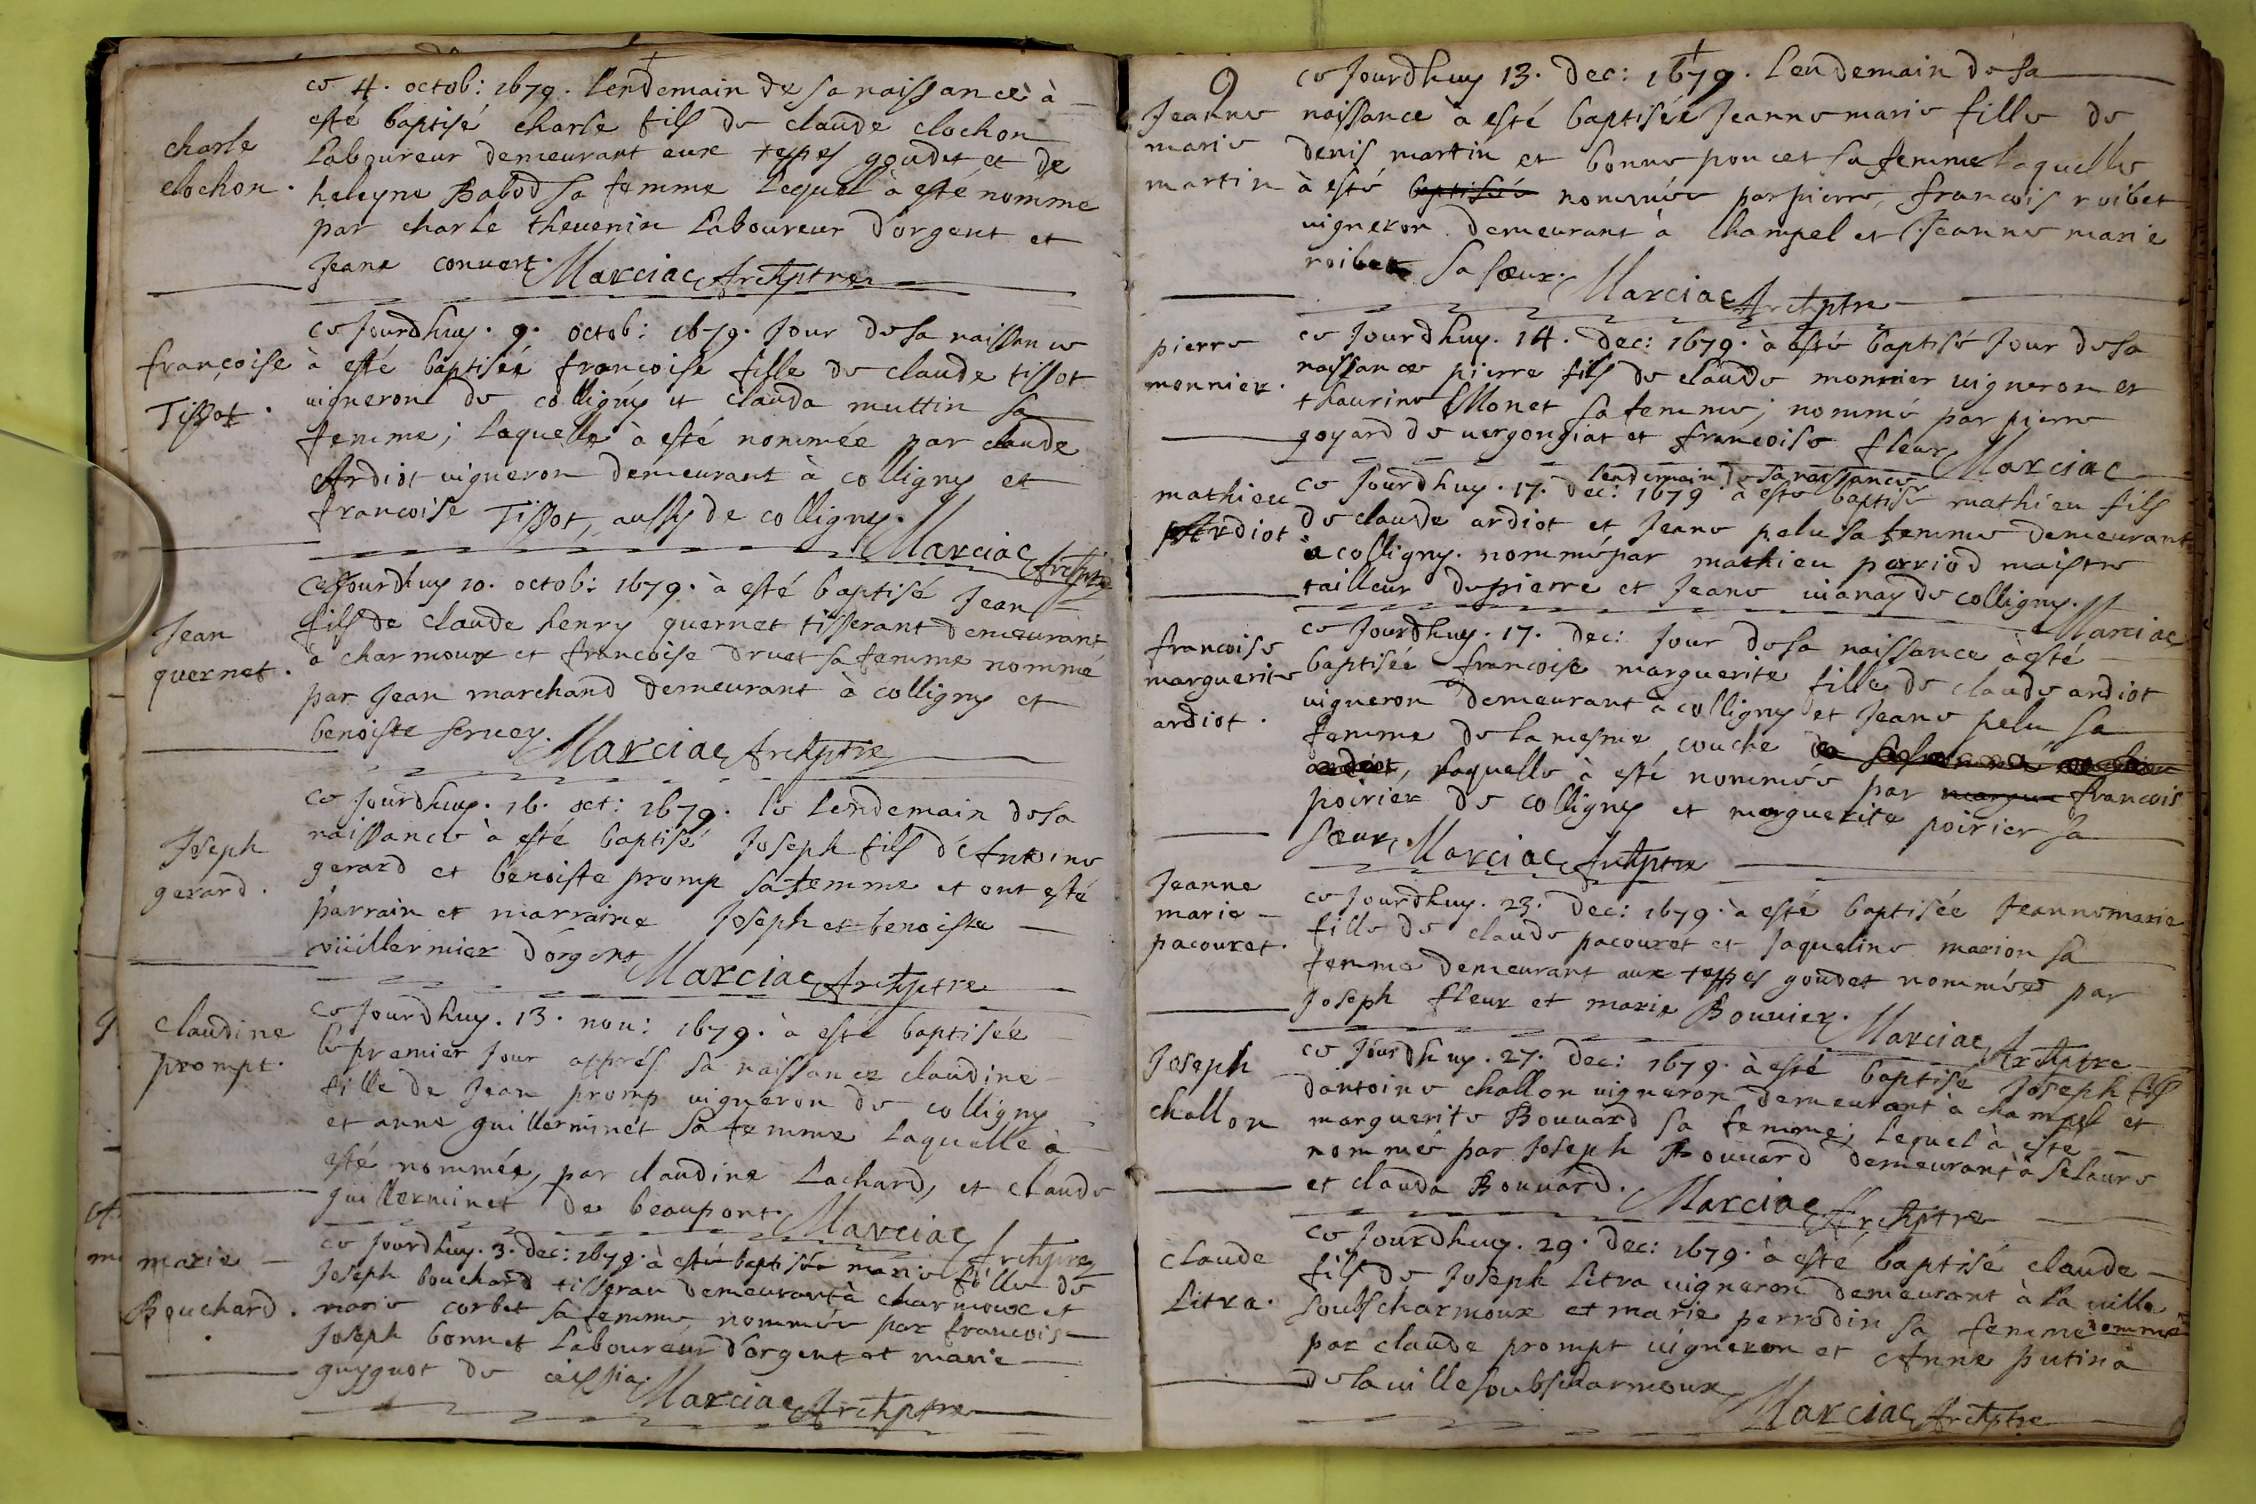 ce 4. octob: 1679. lendemain de sa naissance à
esté baptisé charle fils de claude clochon
Laboureur demeurant aux teppes goudet et de
heleyne Babod sa femme lequel à esté nommé
par charle thevenin Laboureur d'orgent et
Jeane convert. Marciac Archptre
charle
clochon.
ce jourdhuy. 9. octob: 1679. Jour de sa naissance
à esté baptisée françoise fille de claude tissot
vigneron de colligny et clauda muttin sa
femme; laquelle à esté nommée par claude
Ardiot vigneron demeurant à colligny et
francoise Tissot, aussy de colligny. Marciac Archptre
françoise
Tissot.
ce Jourdhuy 10. octob: 1679. à esté baptisé Jean
fils de claude henry quernet tisserant demeurant
à charmoux et francoise druet sa femme nommé
par Jean marchand demeurant à colligny et
benoiste servey. Marciac Archptre
Jean
quernet.
ce jourdhuy. 16. oct: 1679. le lendemain de sa
naissance à esté baptisé Joseph fils d'Antoine
gerard et benoiste promp sa femme et ont esté
parrain et marraine Joseph et benoiste
vuillermier d'orgent Marciac Archptre
Joseph
gerard.
ce Jourdhuy. 13. nou: 1679. à esté baptisée
le premier jour apprés sa naissance claudine
fille de Jean promp vigneron de colligny
et anne guillerminet sa femme laquelle à
esté nommée, par claudine Lachard, et claude
guillerminet de beaupont. Marciac Archptre
claudine
prompt.
ce jourdhuy. 3. dec: 1679. à esté baptisée marie fille de
Joseph bouchard tisseran demeurant à charmoux et
marie corbet sa femme, nommée par francois
Joseph bonnet Laboureur d'orgent et marie
guyguot de cissia. Marciac Archptre
marie
Bouchard.
ce Jourdhuy 13. dec: 1679. Lendemain de sa
naissance à esté baptisée Jeanne marie fille de
denis martin et bonne poncet sa femme laquelle
à esté baptisée nommée par pierre, francois roibet
vigneron demeurant à Champel et Jeanne marie
roibet sa sœur. Marciac Archptre
Jeanne
marie
martin
ce jourdhuy. 14. dec: 1679. à esté baptisé Jour de sa
naissance pierre fils de claude monnier vigneron et
thaurine Monet sa femme; nommé par pierre
goyard de vergongiat et françoise fleur Marciac
pierre
monnier.
lendemain de sa naissance
ce jourdhuy. 17. dec: 1679 à esté baptisé mathieu fils
de claude ardiot et Jeane pelu sa femme demeurant
à colligny. nommé par mathieu perriod maistre
tailleur de pierre et Jeane vianay de colligny. Marciac
mathieu
Ardiot
ce jourdhuy. 17. dec: Jour de sa naissance à esté
baptisée francoise marguerite fille de claude ardiot
vigneron demeurant à colligny et Jeane pelu sa
femme de la mesme couche
ardiot, laquelle à esté nommée par francois
poirier de colligny et marguerite poirier sa
sœur. Marciac Archptre
francoise
marguerite
ardiot.
ce jourdhuy. 23. dec: 1679. à esté baptisée Jeanne marie
fille de claude pacouret et Jaqueline marion sa
femme demeurant aux teppes goudet nommée par
Joseph fleur et marie Bouvier. Marciac Archptre
Jeanne
marie
pacouret.
ce jourdhuy. 27. dec: 1679. à esté baptisé Joseph fils
dantoine challon vigneron, demeurant à champel et
marguerite Bouvard sa femme; lequel à esté
nommé par Joseph Bouvard demeurant à Selaure
et clauda Bouvard. Marciac Archptre
Joseph
challon
ce jourdhuy. 29. dec: 1679. à esté baptisé claude
fils de Joseph Litra vigneron demeurant à la ville
soubs charmoux et marie perrodin sa femme nommé
par claude prompt vigneron et Anne putina
de la ville soubs charmoux Marciac Archptre
claude
Litra.